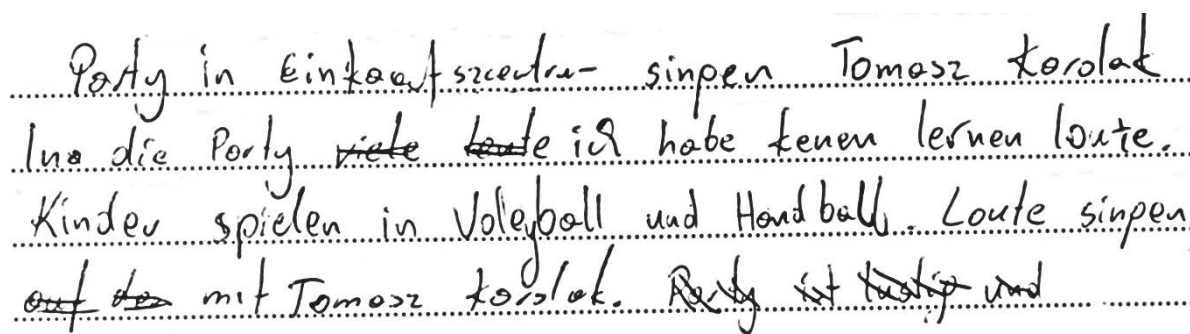 Party in Einkaufszcentru- singen Tomasz Korolak
Ina die Party viele leute ich habe kenen lernen loute.
Kinder spielen in Voleyball und Handball. Loute singen
auf des mit Tomasz Korolak. Party ist lustig und